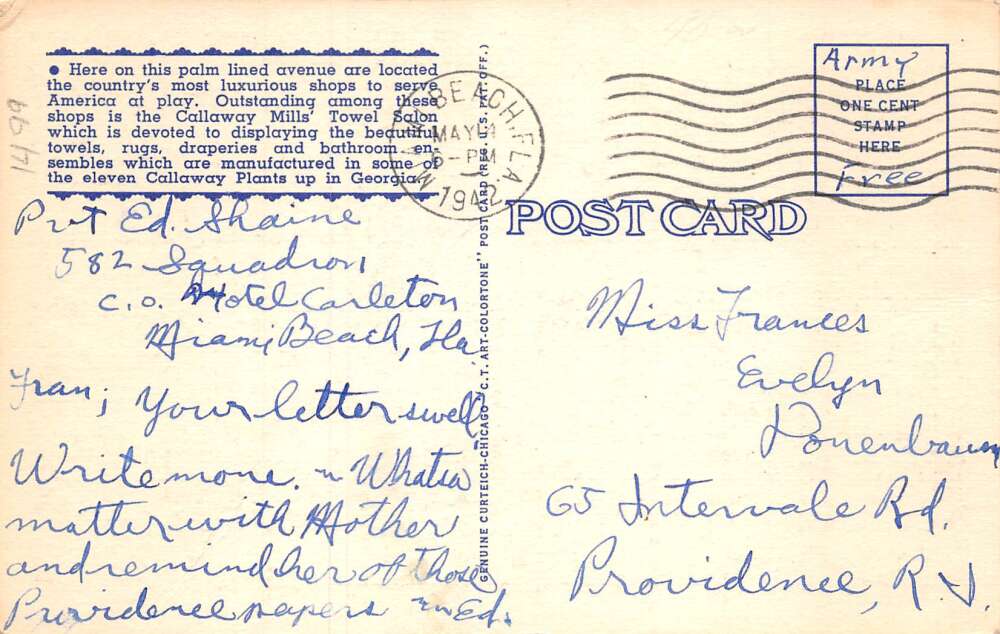 ● Here on this palm lined avenue are located
the country's most luxurious shops to serve
America at play. Outstanding among these
shops is the Callaway Mills' Towel Salon
which is devoted to displaying the beautiful
towels, rugs, draperies and bathroom en-
sembles which are manufactured in some of
the eleven Callaway Plants up in Georgia.
Pvt Ed. Shaine
582 Squadron
c.o. Hotel Carleton
Miami Beach, Fla.
Fran; Your letter swell
Write more. ~ Whatsa
matter with Mother
and remind her of those
Providence papers ~ Ed.
GENUINE CURTEICH-CHICAGO "C.T. ART-COLORTONE" POST CARD (REG. U.S. PAT. OFF.)
BEACH, FLA.
MAY
PM
1942
Army
PLACE
ONE CENT
STAMP
HERE
Free
POST CARD
Miss Frances
Evelyn
Ponenbaum
65 Intervale Rd.
Providence, R.I.